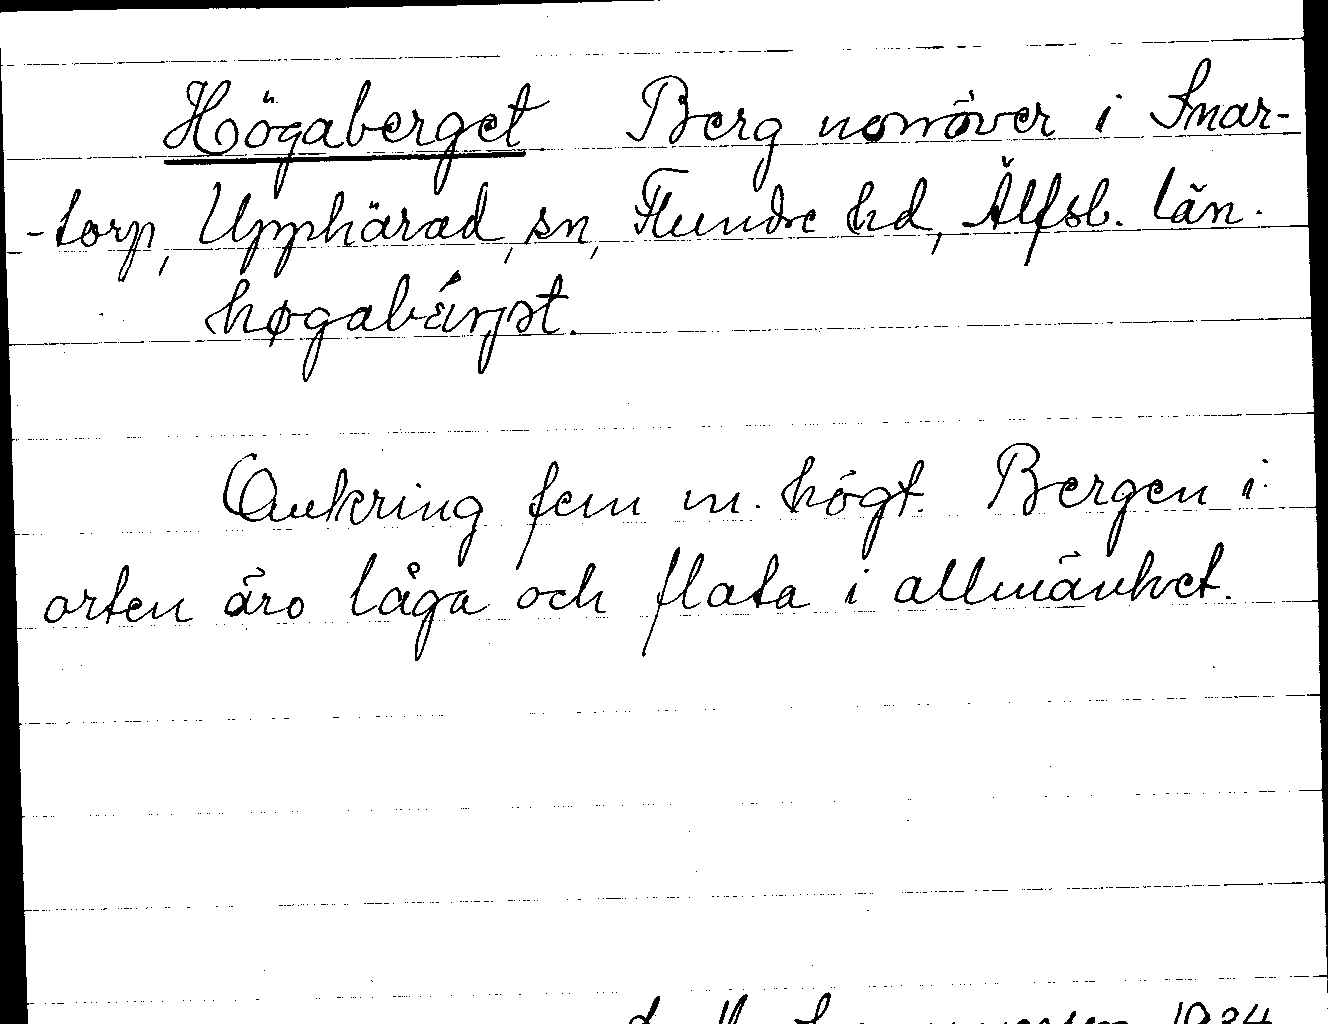 Högaberget Berg norröver i Snar-
-torp, Upphärad, sn, Flundre hd, Älfsb. län.
høgabä́rjət.
Omkring fem m. högt. Bergen i
orten äro låga och flata i allmänhet.
1924